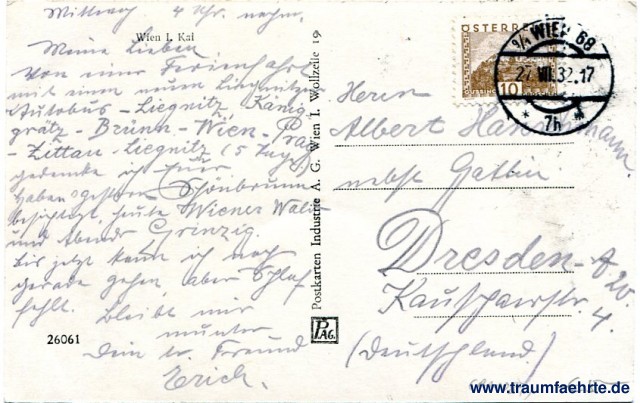 Mittwoch 4 Uhr nachm.
Wien I. Kai
Meine Lieben
Von einer Ferienfahrt
mit einem neuen Liegnitzer
Autobus - Liegnitz - König-
grätz - Brünn - Wien - Prag
- Zittau - Liegnitz (5 Tage)
gedenke ich Eurer
Haben gestern Schönbrunn
besichtigt, heute Wiener Wald
und Abends Grinzig.
Bis jetzt kann ich noch
gerade gehen, aber Schlaf
fehlt. Bleibt mir
munter
Dein tr. Freund
Erich.
26061
Postkarten Industrie A. G. Wien I. Wollzeile 19
PAG.
ÖSTERREICH
10
WIEN 68
27.VII.32.17
* 7h *
Herrn
Albert
nebst Gattin
Dresden - A 20.
4.
(Deutschland)
www.traumfaehrte.de